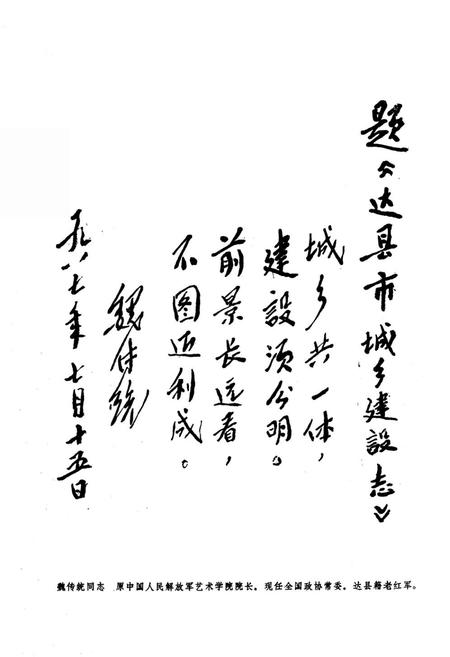 题《达县市城乡建設志》
城乡共一体，
建設须分明。
前景长远看，
不图近利成。
魏传统
一九八七年七月十五日
魏传统同志　原中国人民解放军艺术学院院长。现任全国政协常委。达县籍老红军。